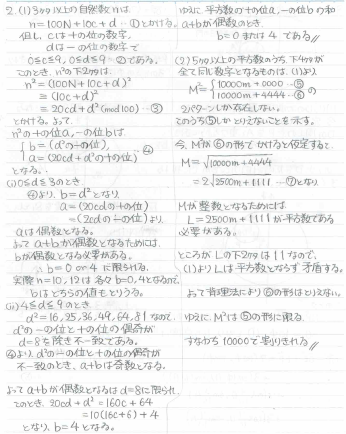 2. (1) 3ケタ以上の自然数nは、
n=100N+10c+d …①とかける。
但し、Cは十の位の数字、
dは一の位の数字で
0≦c≦9, 0≦d≦9 …②である。
このとき、n²の下2ケタは、
n²=(100N+10c+d)²
≡(10c+d)²
≡20cd+d² (mod 100) …③
とかける。よって、
n²の十の位a, 一の位bは、
b=(d²の一の位),
a=(20cd+d²の十の位) …④
となる。
(i) 0≦d≦3のとき、
④より、b=d²となり、
a=(20cdの十の位)
=(2cdの一の位)より、
aは偶数となる。
よってa+bが偶数となるためには、
bが偶数となる必要がある。
∴b=0 or 4に限られる。
実際n=10,12は各々b=0,4となるので、
bはどちらの値もとりうる。
(ii) 4≦d≦9のとき、
d²=16,25,36,49,64,81なので、
d²の一の位と十の位の偶奇が
d=8を除き不一致である。
④より、d²の一の位と十の位の偶奇が
不一致のとき、a+bは奇数となる。
よってa+bが偶数となるはd=8に限られ、
このとき、20cd+d²=160c+64
=10(16c+6)+4
となり、b=4となる。
ゆえに、平方数の十の位a, 一の位bの和
a+bが偶数のとき、
b=0または4である//
(2) 5ケタ以上の平方数のうち、下4ケタが
全て同じ数字となるものは、(1)より
M²={10000m+0000 …⑤
10000m+4444 …⑥ の
2パターンしか存在しない。
このうち⑤しかとりえないことを示す。
今、M²が⑥の形でかけると仮定すると、
M=√10000m+4444
=2√2500m+1111 …⑦となり、
Mが整数となるためには
L=2500m+1111が平方数である
必要がある。
ところがLの下2ケタは11なので、
(1)よりLは平方数とならず矛盾する。
よって背理法により⑥の形はとりえない。
ゆえに、M²は⑤の形に限る。
すなわち10000で割りきれる//